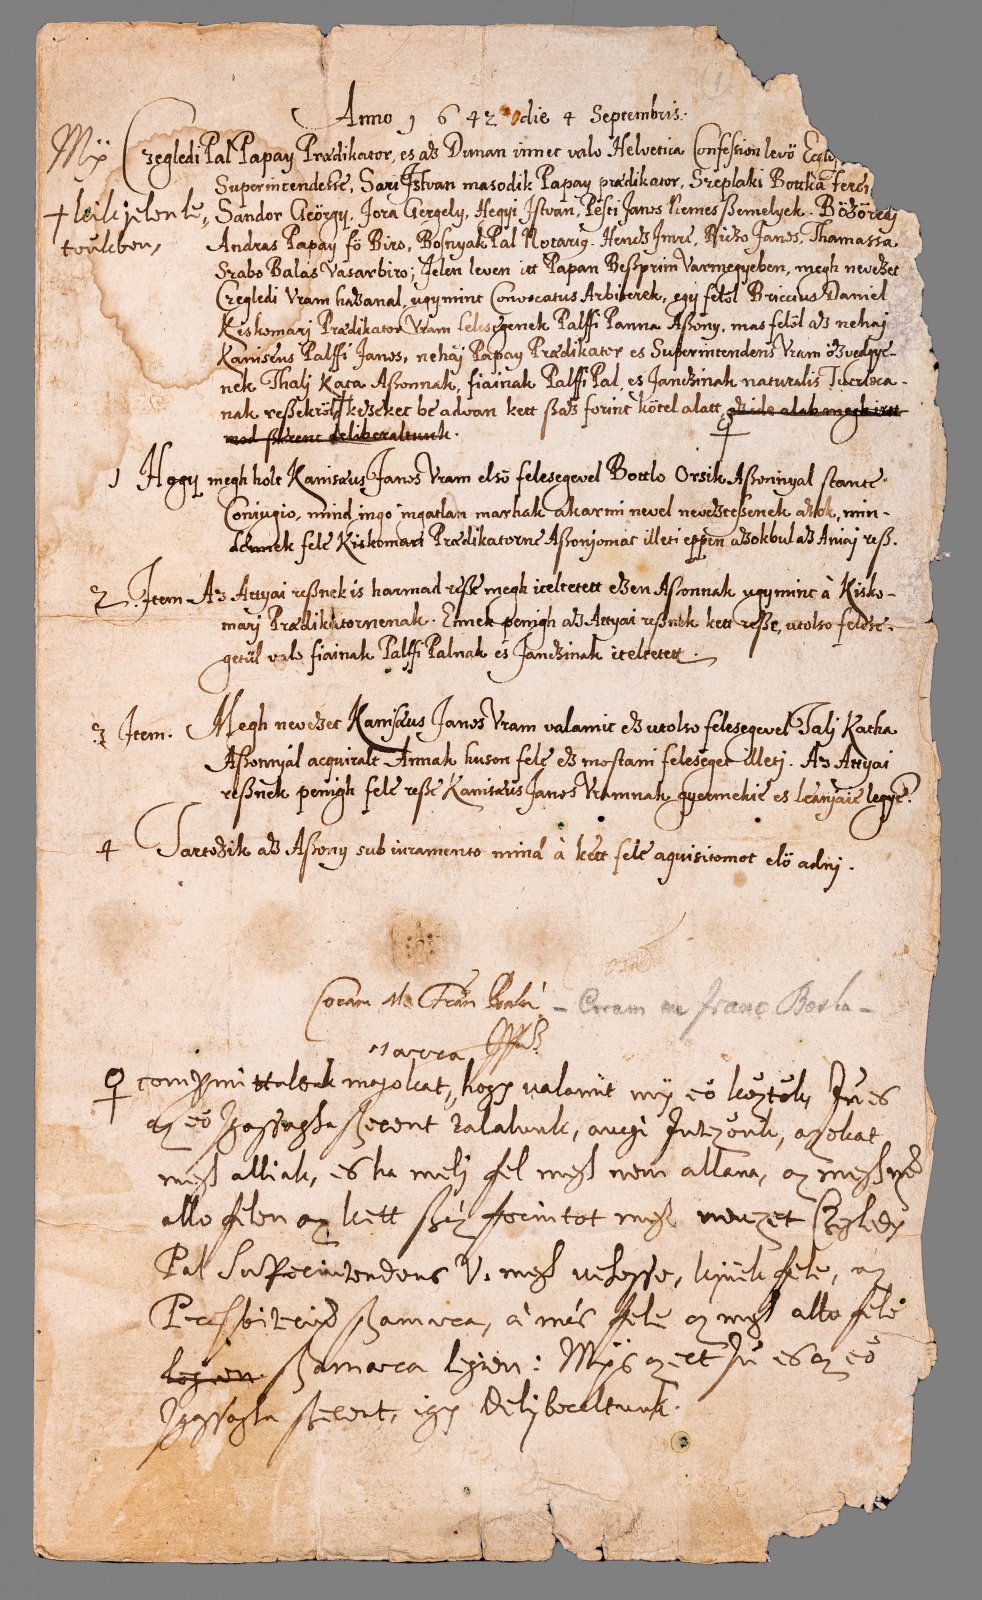 Anno 1642 die 4 Septembris.
Mÿ Czegledi Pal Papay Prædikator, es az Dunan innet valo Helvetica Confession levö
Superintendense, Sari Istvan masodik Papay prædikator, Szeplaki Bottka
Sandor Geörgy, Jora Gergely, Hegyi Istvan, Pesti Janos Nemes ßemelyek.
Andras Papay fö Biro, Bosnyak Pal Notarius. Imre, Janos, Thamassa
Szabo Balas Vasarbiro; Jelen leven itt Papan Beßprim Varmegyeben, megh nevezet
Czegledi Vram hazanal, ugymint Convocatus Arbiterek, egy felöl Briccius Daniel
Kiskomarj Prædikator Vram felesegenek Palffi Panna Aßony, mas felöl az nehaj
Kanisæus Palffi Janos, nehaj Papay Prædikator es Superintendens Vram özvedgye-
nek Thalj Kata Aßonnak, fiainak Palffi Pal, es Janczinak naturalis
nak reßekröl kezeket be advan kett ßaz forint kötel alatt, az ide alab megh irtt
mod ßerent deliberaltunk.
+ lelki jelenlü
1 Hogy megh holt Kanisæus Janos Vram elsö felesegevel Bottlo Orsik Aßonnyal stante
Conjugio, mind ingo ingatlan marhak akarmi nevel neveztessenek azok, min-
dennek fele Kiskomari Prædikatorne Aßonjomat illeti eppen azokbul az Aniaj reß.
2 Item. Az Attyai reßnek is harmad reße megh iteltetett ezen Aßonnak ugymint à Kisko-
marj Prædikatornenak. Ennek penigh az Attyai reßnek kett reße, utolso felese-
getül valo fiainak Palffi Palnak es Janczinak iteltetett.
3 Item. Megh nevezet Kanisæus Janos Vram valamit ez utolso felesegevel Talj Katha
Aßonnyal acquiralt Annak huson fele ez mostani feleseget illetj. Az Attyai
reßnek penigh fele reße Kanisæus Janos Vramnak gyermekie es leanyaie legye.
4 Tartozik az Aßony sub iuramento mind à kett fele aquisitomot elö adnj.
Coram Me Fran - Coram me franc Borka -
marra
compromittaltak magokat, hogy valamit mÿ eö köztök, Jú es
az eö Igassagha ßerent talalunk, avagi Intezönk, azokat
megh alliak, es ha melj fel megh nem allana, az megh nem
allo felen az kett ßáz forintot megh nevezet Czegledy
Pal Superintendens V. megh vehesse, kinek fele, az
Presbiterium ßamara, à más fele az megh allo fele
legien ßamara legien: Mÿs azert Jú es az eö
Igassagha ßerent, igy Deliberaltunk.